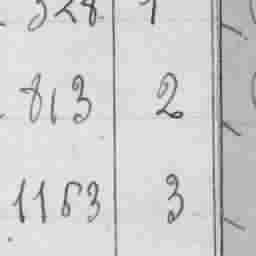 328 1
813 2
1163 3